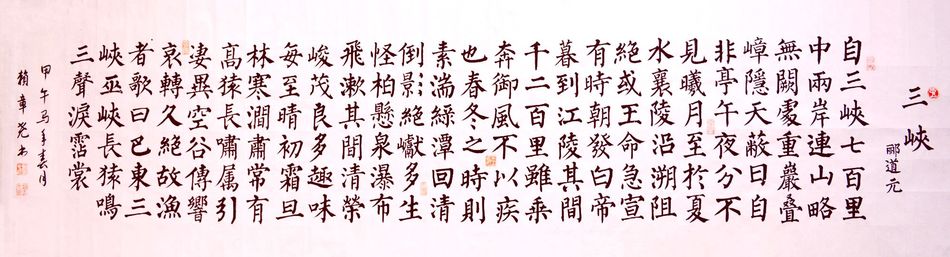 三峽
郦道元
自三峽七百里
中兩岸連山略
無闕處重巖疊
嶂隱天蔽日自
非亭午夜分不
見曦月至於夏
水襄陵沿溯阻
絕或王命急宣
有時朝發白帝
暮到江陵其間
千二百里雖乘
奔御風不以疾
也春冬之時則
素湍綠潭回清
倒影絕巘多生
怪柏懸泉瀑布
飛漱其間清榮
峻茂良多趣味
每至晴初霜旦
林寒澗肅常有
高猿長嘯属引
凄異空谷傳響
哀轉久絕故漁
者歌曰巴東三
峽巫峽長猿鳴
三聲淚霑裳
甲午马年春月
章书